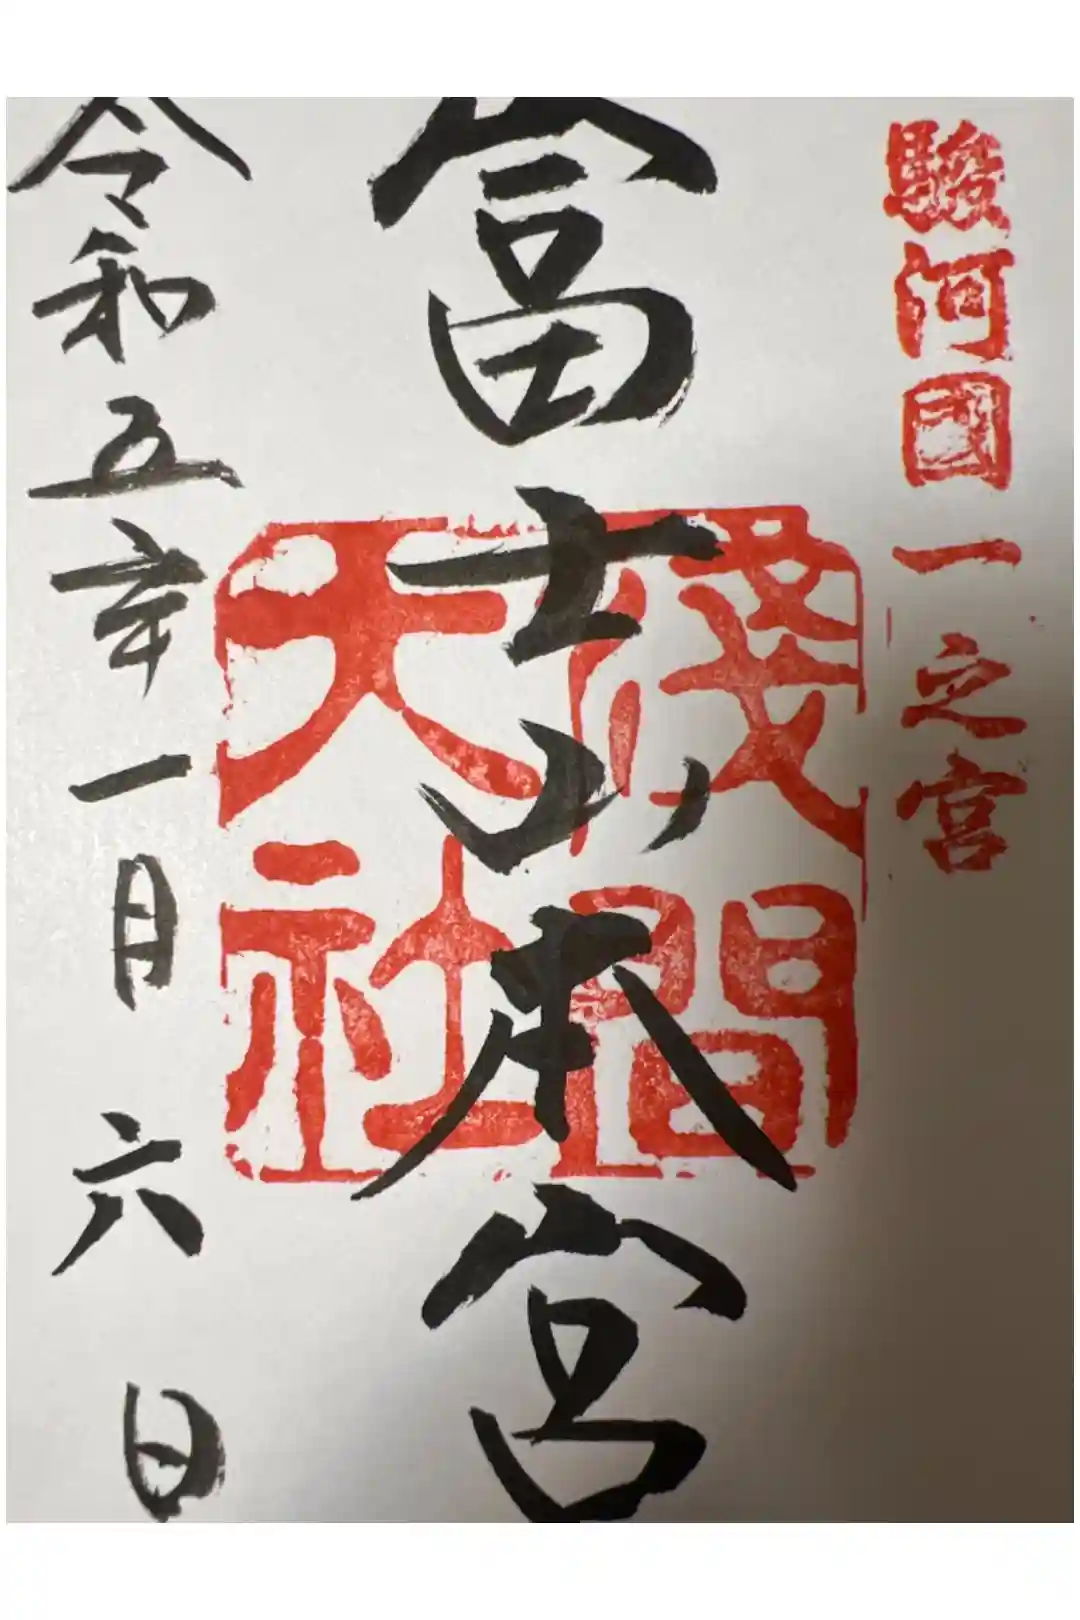 駿河國一之宮
富士山本宮
淺間大社
令和五年一月六日